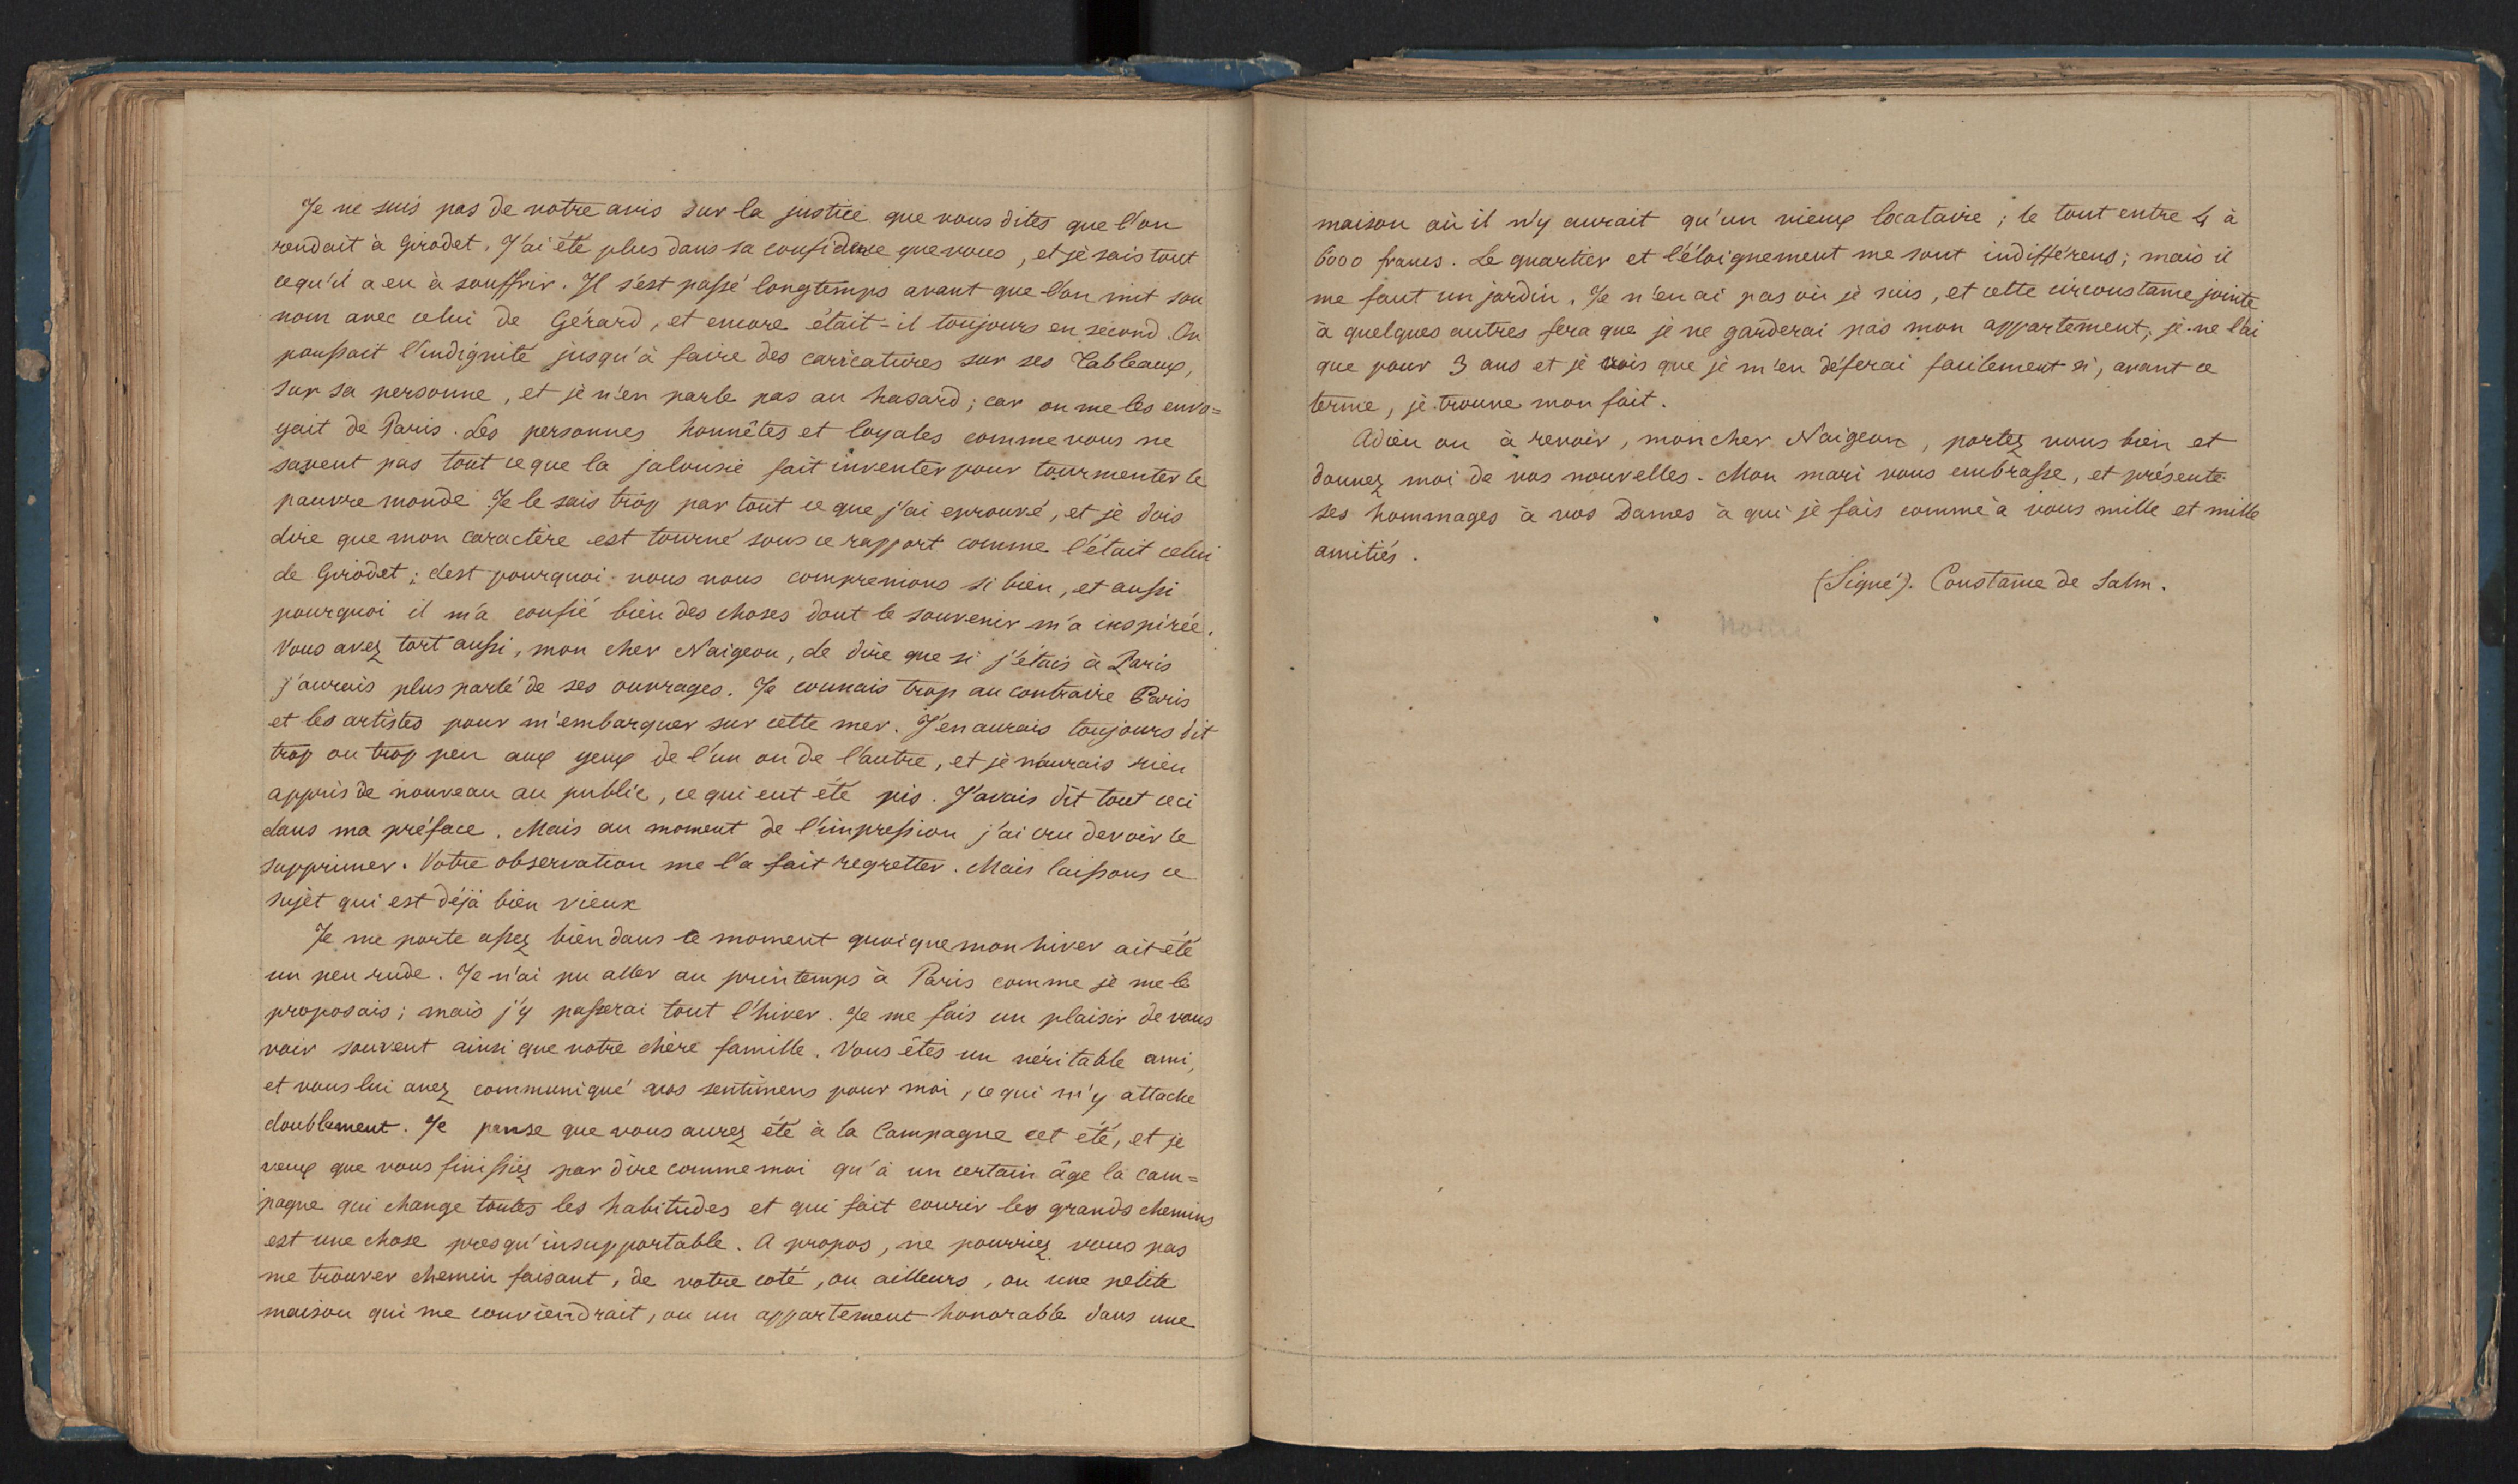 Je ne suis pas de votre avis sur la justice que vous dites que l'on
rendait à Girodet. J'ai été plus dans sa confidence que vous, et je sais tout
ce qu'il a eu à souffrir. Il s'est passé longtemps avant que l'on mit son
nom avec celui de Gérard, et encore était-il toujours en second. On
poussait l'indignité jusqu'à faire des caricatures sur ses Tableaux,
sur sa personne, et je n'en parle pas au hasard; car on me les envo=
yait de Paris. Les personnes honnêtes et loyales comme vous ne
savent pas tout ce que la jalousie fait inventer pour tourmenter le
pauvre monde. Je le sais trop par tout ce que j'ai eprouvé, et je dois
dire que mon caractère est tourné sous ce rapport comme l'était celui
de Girodet; c'est pourquoi nous nous comprenions si bien, et aussi
pourquoi il m'a confié bien des choses dont le souvenir m'a inspirée.
Vous avez tort aussi, mon cher Naigeon, de dire que si j'étais à Paris
j'aurais plus parlé de ses ouvrages. Je connais trop au contraire Paris
et les artistes pour m'embarquer sur cette mer. J'en aurais toujours dit
trop ou trop peu aux yeux de l'un ou de l'autre, et je n'aurais rien
appris de nouveau au public, ce qui eut été pis. J'avais dit tout ceci
dans ma préface. Mais au moment de l'impression j'ai cru devoir le
supprimer. Votre observation me l'a fait regretter. Mais laissons ce
sujet qui est déjà bien vieux
Je me porte assez bien dans ce moment quoique mon hiver ait été
un peu rude. Je n'ai pu aller au printemps à Paris comme je me le
proposais; mais j'y passerai tout l'hiver. Je me fais un plaisir de vous
voir souvent ainsi que votre chère famille. Vous êtes un véritable ami,
et vous lui avez communiqué vos sentimens pour moi, ce qui m'y attache
doublement. Je pense que vous aurez été à la Campagne cet été, et je
veux que vous finissiez par dire comme moi qu'à un certain âge la cam=
pagne qui change toutes les habitudes et qui fait courir les grands chemins
est une chose presqu'insupportable. A propos, ne pourriez vous pas
me trouver chemin faisant, de votre coté, ou ailleurs, ou une petite
maison qui me conviendrait, ou un appartement honorable dans une
maison où il n'y aurait qu'un vieux locataire; le tout entre 4 à
6000 francs. Le quartier et l'éloignement me sont indifférens; mais il
me faut un jardin. Je n'en ai pas où je suis, et cette circonstance jointe
à quelques autres fera que je ne garderai pas mon appartement; je ne l'ai
que pour 3 ans et je crois que je m'en déferai facilement si, avant ce
terme, je trouve mon fait.
Adieu ou à revoir, mon cher Naigeon, portez vous bien et
donnez moi de vos nouvelles. Mon mari vous embrasse, et présente
ses hommages à vos Dames à qui je fais comme à vous mille et mille
amitiés.
(Signé). Constance de Salm.